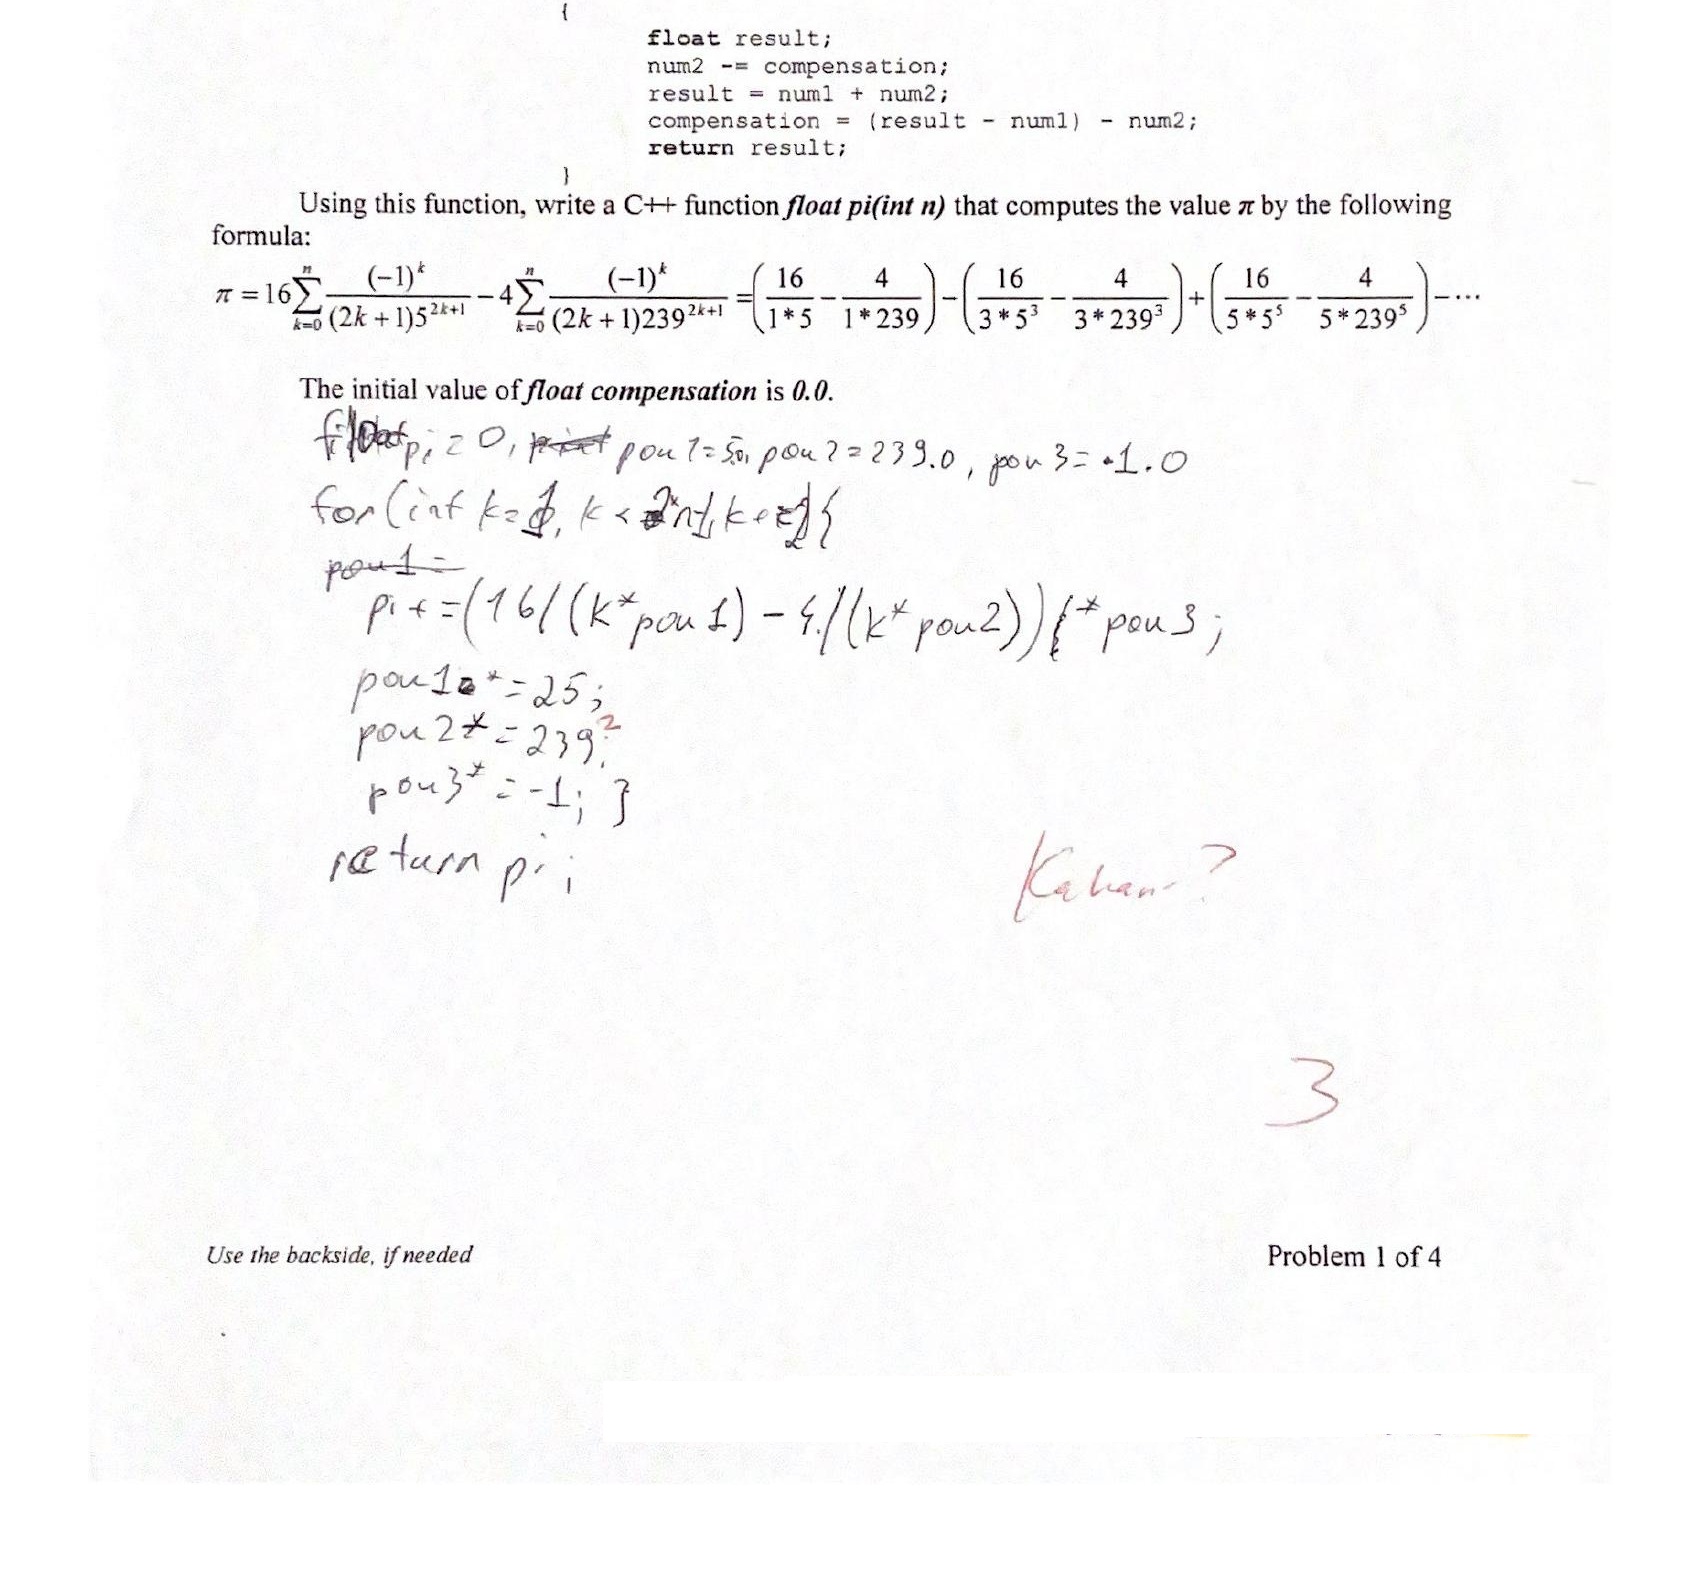 {
float result;
num2 -= compensation;
result = num1 + num2;
compensation = (result - num1) - num2;
return result;
}
Using this function, write a C++ function float pi(int n) that computes the value π by the following
formula:
π = 16 ∑_{k=0}^{n} (-1)^k / ((2k + 1)5^{2k+1}) - 4 ∑_{k=0}^{n} (-1)^k / ((2k + 1)239^{2k+1}) = (16 / (1*5) - 4 / (1*239)) - (16 / (3*5^3) - 4 / (3*239^3)) + (16 / (5*5^5) - 4 / (5*239^5)) - ...
The initial value of float compensation is 0.0.
float pi = 0, pow1 = 5.0, pow2 = 239.0, pow3 = 1.0
for (int k=1, k < 2*n+1, k+=2){
pow1 =
pi += (16/(k*pow1) - 4./(k*pow2)) *pow3;
pow1 *= 25;
pow2 *= 239²;
pow3 *= -1; }
return pi;
Kahan - ?
3
Use the backside, if needed
Problem 1 of 4